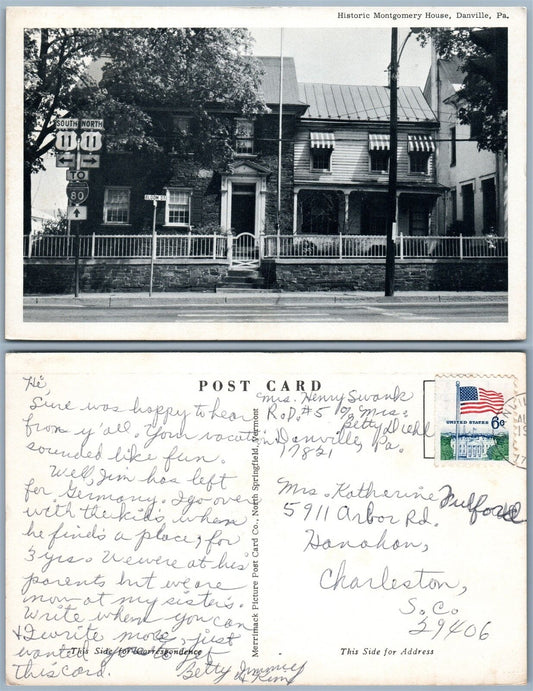 Historic Montgomery House, Danville, Pa.
SOUTH NORTH
11 11
TO
80
BLOOM ST
POST CARD
Hi,
Sure was happy to hear
from y'all. Your vacation
sounded like fun.
Well, Jim has left
for Germany. I go over
with the kids, when
he find's a place, for
3 yrs. We were at his
parents but we are
now at my sister's.
Write when you can
& I write more, just
wanted you to get
this card.
Betty, Jimmy
& Kim
This Side for Correspondence
Merrimack Picture Post Card Co., North Springfield, Vermont
Mrs. Henry Swank
R.D. #5 % Mrs.
Betty Diehl
Danville, Pa.
17821
UNITED STATES 6¢
Mrs. Katherine Fulford
5911 Arbor Rd.
Hanahan,
Charleston,
S. Co.
29406
This Side for Address